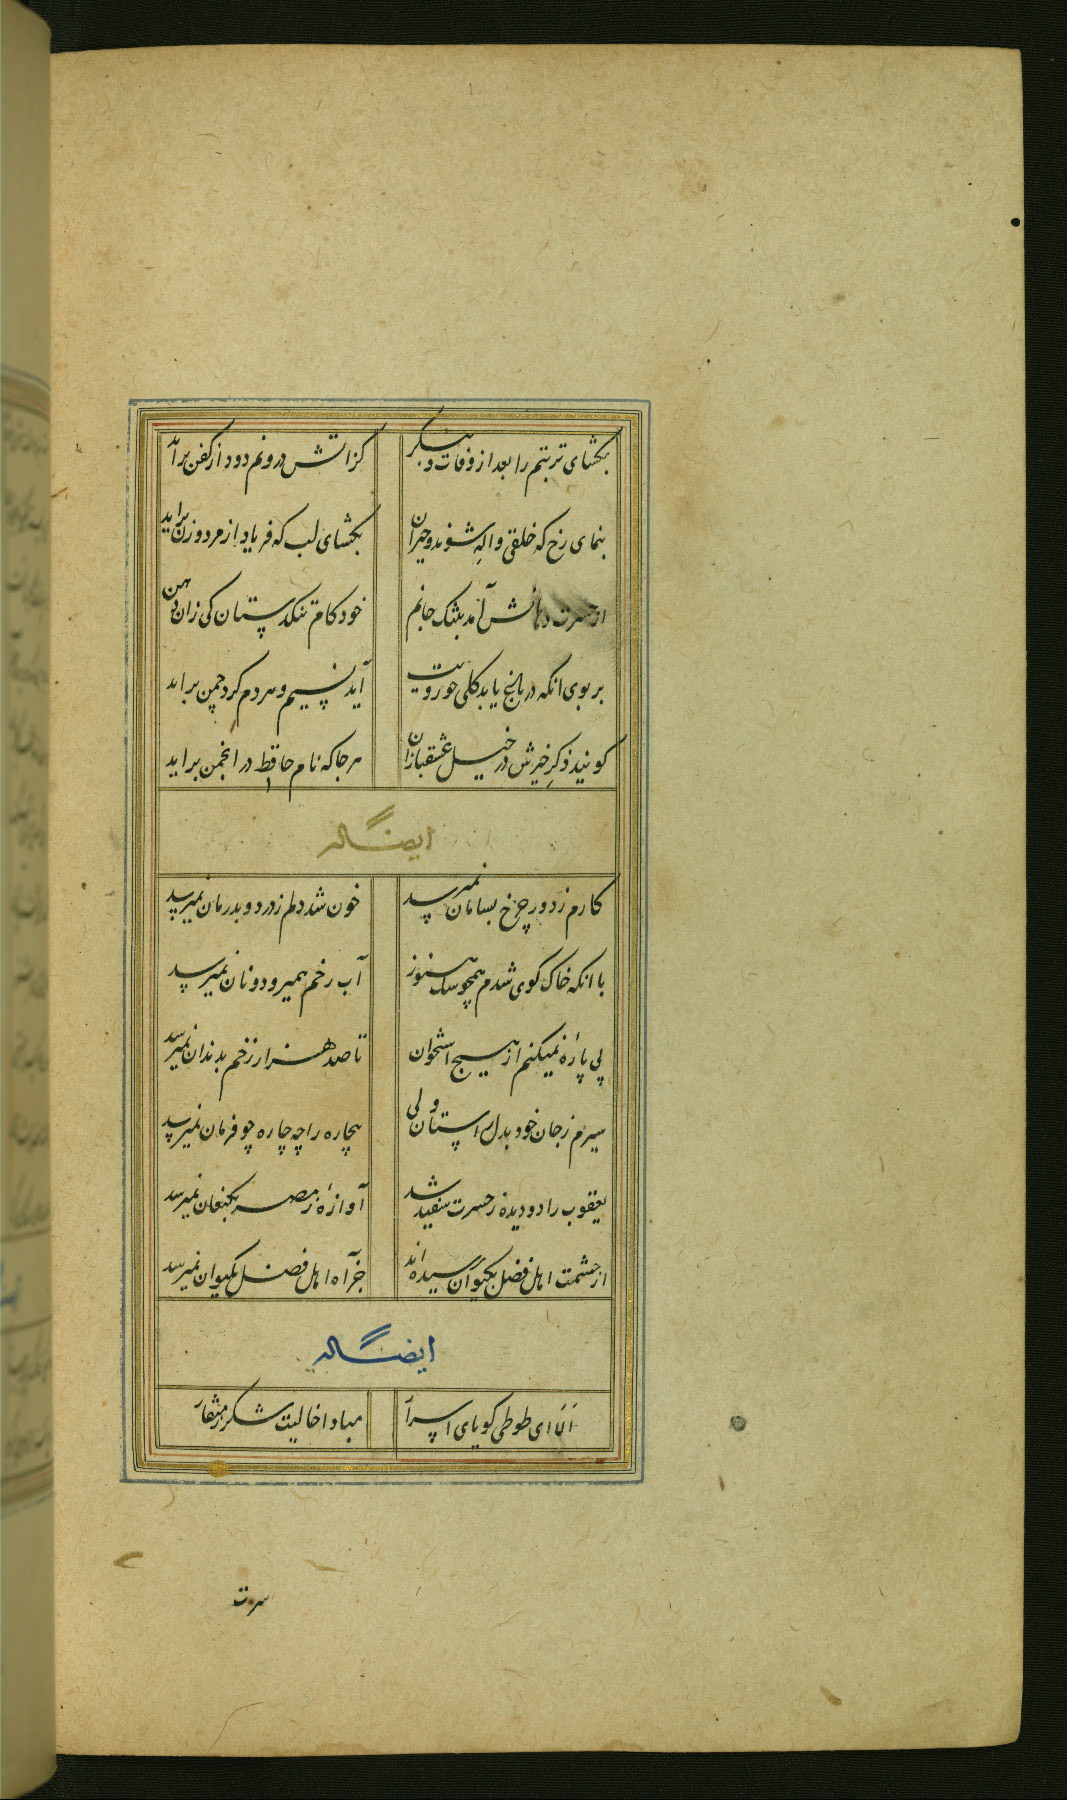 بکشای تربتم را بعد از وفات و بنکر کز آتش درونم دود از کفن برآید
بنمای رخ که خلقی واله شوند و حیران بکشای لب که فریاد از مرد و زن براید
از حسرت دهانش آمد بتنک جانم خود کام تنکدستان کی زان دهن
بر بوی انکه در باغ یابد کلی چو رویت آید نسیم و هر دم کرد چمن براید
کویند ذکر خیرش در خیل عشقبازان هر جا که نام حافظ در انجمن براید
ایضا له
کارم ز دور چرخ بسامان نمیرسد خون شد دلم ز درد و بدرمان نمیرسد
با انکه خاک کوی شدم همچو سک هنوز آب رخم همیرود و نان نمیرسد
پی پارهٔ نمیکنم از هیچ استخوان تا صد هزار زخم بدندان نمیرسد
سیرم ز جان خود بدل راستان ولی بیچاره را چه چاره چو فرمان نمیرسد
یعقوب را دو دیده ز حسرت سفید شد آوازهٔ ز مصر بکنعان نمیرسد
از حشمت اهل فضل بکیوان رسیده اند جز آه اهل فضل بکیوان نمیرسد
ایضا له
الا ای طوطی کویای اسرار مبادا خالیت شکر ز منقار
سرت